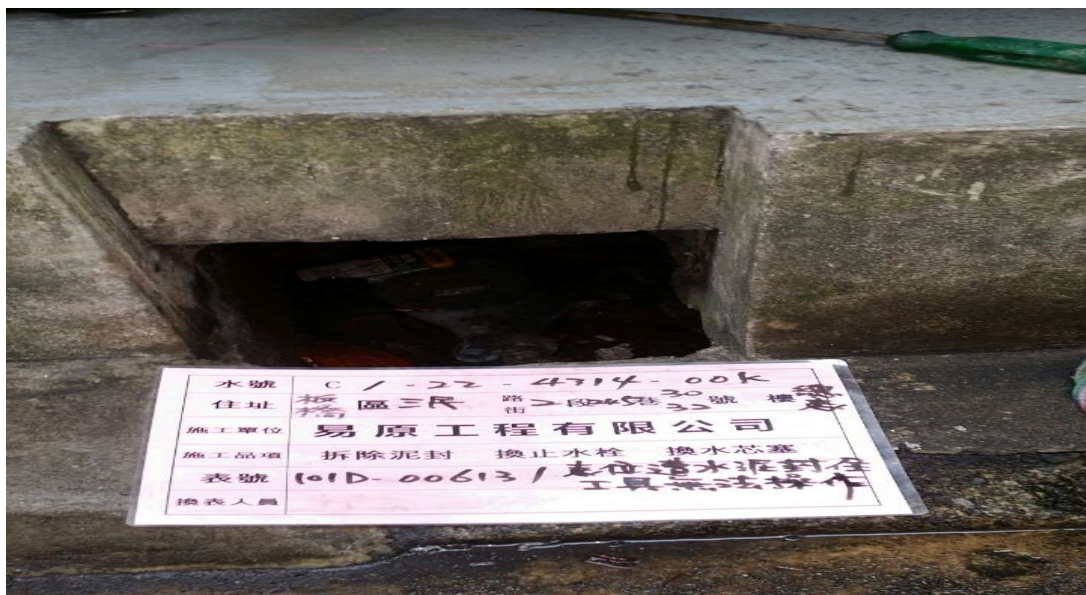 水號 C 1-22-4314-00K
住址 板橋區三民 路街 2段245巷 30 32 號 樓
施工單位 易原工程有限公司
施工品項 拆除泥封 換止水栓 換水芯塞
表號 101D-006131 表位進水泥封住
工具無法操作
換表人員